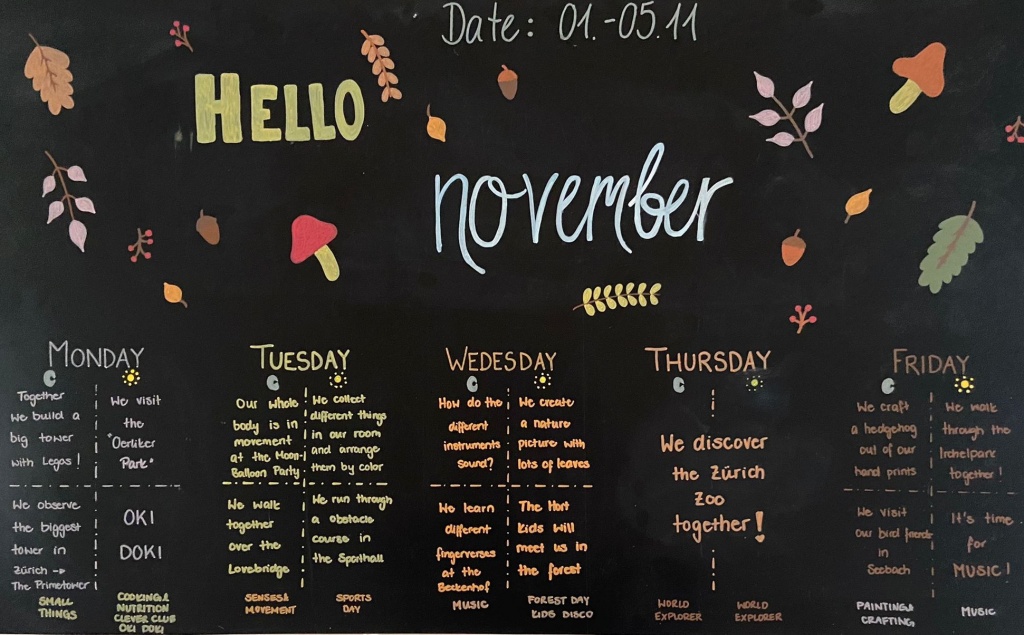 Date: 01.-05.11
HELLO
november
MONDAY
Together
we build a
big tower
with Legos!
We visit
the
"Oerliker
Park"
We observe
the biggest
tower in
Zürich →
The Primetower
OKI
DOKI
SMALL
THINGS
COOKING &
NUTRITION
CLEVER CLUB
OKI DOKI
TUESDAY
Our whole
body is in
movement
at the Moon-
Balloon Party
We collect
different things
in our room
and arrange
them by color
We walk
together
over the
Lovebridge
We run through
a obstacle
course in
the Sporthall
SENSES &
MOVEMENT
SPORTS
DAY
WEDESDAY
How do the
different
instruments
sound?
We create
a nature
picture with
lots of leaves
We learn
different
fingerverses
at the
Beckenhof
The Hort
Kids will
meet us in
the forest
MUSIC
FOREST DAY
KIDS DISCO
THURSDAY
We discover
the Zürich
Zoo
together!
WORLD
EXPLORER
WORLD
EXPLORER
FRIDAY
We craft
a hedgehog
out of our
hand prints
We walk
through the
Irchelpark
together!
We visit
our bird friends
in
Seebach
It's time
for
MUSIC!
PAINTING &
CRAFTING
MUSIC